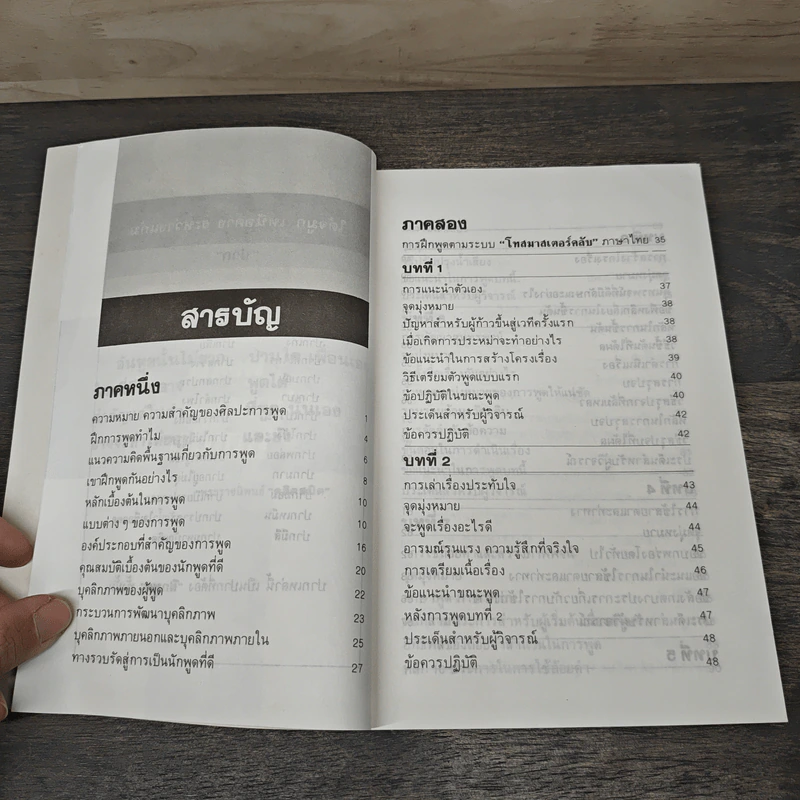 สารบัญ
ภาคหนึ่ง
ความหมาย ความสำคัญของศิลปะการพูด 1
ฝึกการพูดทำไม 4
แนวความคิดพื้นฐานเกี่ยวกับการพูด 6
เขาฝึกพูดกันอย่างไร 8
หลักเบื้องต้นในการพูด 10
แบบต่าง ๆ ของการพูด 10
องค์ประกอบที่สำคัญของการพูด 16
คุณสมบัติเบื้องต้นของนักพูดที่ดี 20
บุคลิกภาพของผู้พูด 22
กระบวนการพัฒนาบุคลิกภาพ 23
บุคลิกภาพภายนอกและบุคลิกภาพภายใน 25
ทางรวบรัดสู่การเป็นนักพูดที่ดี 27
ภาคสอง
การฝึกพูดตามระบบ “โทสมาสเตอร์คลับ” ภาษาไทย 35
บทที่ 1
การแนะนำตัวเอง 37
จุดมุ่งหมาย 38
ปัญหาสำหรับผู้ก้าวขึ้นสู่เวทีครั้งแรก 38
เมื่อเกิดการประหม่าจะทำอย่างไร 38
ข้อแนะนำในการสร้างโครงเรื่อง 39
วิธีเตรียมตัวพูดแบบแรก 40
ข้อปฏิบัติในขณะพูด 40
ประเด็นสำหรับผู้วิจารณ์ 42
ข้อควรปฏิบัติ 42
บทที่ 2
การเล่าเรื่องประทับใจ 43
จุดมุ่งหมาย 44
จะพูดเรื่องอะไรดี 44
อารมณ์รุนแรง ความรู้สึกที่จริงใจ 45
การเตรียมเนื้อเรื่อง 46
ข้อแนะนำขณะพูด 47
หลังการพูดบทที่ 2 47
ประเด็นสำหรับผู้วิจารณ์ 48
ข้อควรปฏิบัติ 48